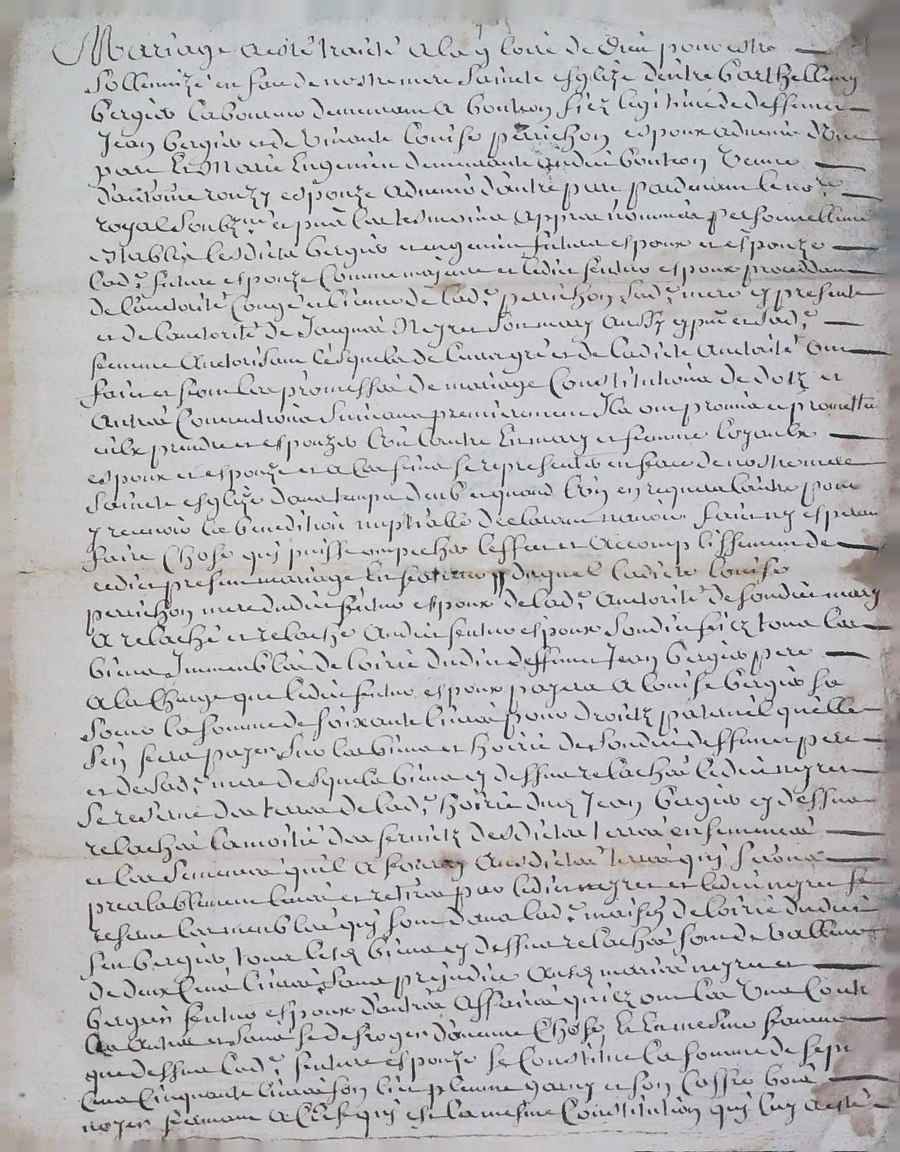 Mariage a esté traité a la gloire de dieu pour estre
sollemnizé en face de nostre mere sainte esglize d'entre Barthellemy
Bergier laboureur demeurant a Boutron filz legitime de deffunct
Jean Bergier et de vivante Louise perrichon espoux advenir d'une
part Et Marie Eugenien demeurante audit Boutron veuve
d'antoine espouze advenir d'autre part pardevant le no.re
royal soubz.né et presans les tesmoins appres nommés personnellement
establis lesdicts Bergier et eugenien futurs espoux et espouze
lad. future espouze comme majeure et ledit futur espoux procedant
de l'autorité congé et licence de lad. perrichon sad. mere y presente
et de l'autorité de Jacques Negre son mary aussy y pnt et sad.
femme auctorisant lesquels de leurs gré et de ladicte auctorité ont
faict et font les promesses de mariage constitutions de dotz et
autres conventions suivans premierement Ils ont promis et promettent
eulx prendre et espouzer l'un l'autre en mary et femme loyaulx
espoux et espouze et a ces fins se representer en face de nostre mere
sainte esglize dans temps deub et quand l'un en requera l'autre pour
y recevoir la benedition nuptialle declarant n'avoir faict ny esperent
faire chose qui puisse empecher l'effet et accomplissement de
cedict present mariage En faveur duquel ladicte Louise
perrichon mere dudict futur espoux de lad. auctorité de sondict mary
a relaché et relache audict futur espoux sondict filz tous les
biens Immeubles de l'oirie dudict deffunct Jean Bergier pere
a la charge que ledict futur espoux payera a Louise Bergier sa
soeur la somme de soixante livres pour droitz paternel qu'elle
s'en fera payer sur les biens et hoirie de sondict deffunct pere
et de sad. mere desquels biens cy dessus relachés ledict negre
se reserve des terres de lad. hoirie dud. Jean Bergier cy dessus
relachés la moitié des fruitz desdictes terres ensemencés
et les semences qu'il a fourny ausdictes terres qui seront
prealablement levés et retirés par ledict negre et ledict negre se
reserve les meubles qui sont dans lad. maison de l'oirie dudict
feu Bergier tous lesd. biens cy dessus relachés sont de valleur
de deux cens livres sans prejudice ausd. mariés negre et
Bergier futur espoux d'autres affaires qu'ilz ont les uns contre
les autres et sans se desroger d'aucune chose Et En mesme faveur
que dessus lad. future espouze se constitue la somme de sept
cens cinquante livres son lict plume garny et son coffre bois
noyer fermant a clef qui est la mesme constitution qui luy a esté